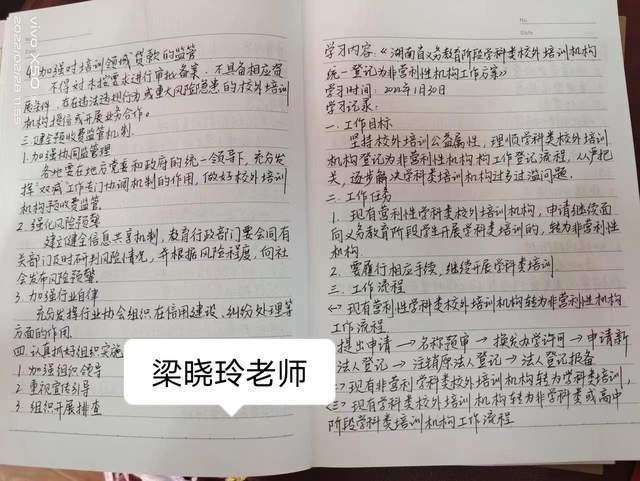 4.加强对培训领域贷款的监管
不得对未按要求进行审批备案、不具备相应资
质条件、存在违法违规行为或重大风险隐患的校外培训
机构授信或开展业务合作。
三.健全预收费监管机制.
1.加强协同监管理
各地要在地方党委和政府的统一领导下,充分发
挥"双减"工作专门协调机制的作用,做好校外培训
机构预收费监管.
2.强化风险预警
建立健全信息共享机制,教育行政部门要会同有
关部门及时研判风险情况,并根据风险程度,向社
会发布风险预警.
3.加强行业自律
充分发挥行业协会组织在信用建设、纠纷处理等
方面的作用.
四.认真抓好组织实施
1.加强组织领导
2.重视宣传引导
3.组织开展排查
梁晓玲老师
No.
Date
学习内容:《湖南省义务教育阶段学科类校外培训机构
统一登记为非营利性机构工作方案》
学习时间:2022年1月30日
学习记录:
一.工作目标
坚持校外培训公益属性,理顺学科类校外培训
机构登记为非营利性机构工作登记流程,从严把
关,逐步解决学科类培训机构过多过滥问题.
二.工作任务
1.现有营利性学科类校外培训机构,申请继续面
向义务教育阶段学生开展学科类培训的,转为非营利性
机构
2.要履行相应手续,继续开展学科类培训
三.工作流程
<一>现有营利性学科类校外培训机构转为非营利性机构
工作流程
提出申请→名称预审→换发办学许可→申请新
法人登记→注销原法人登记→法人登记报备
<二>现有非营利学科类校外培训机构转为学科类培训,
<三>现有学科类校外培训机构转为非学科类或高中
阶段学科类培训机构工作流程
vivo X50